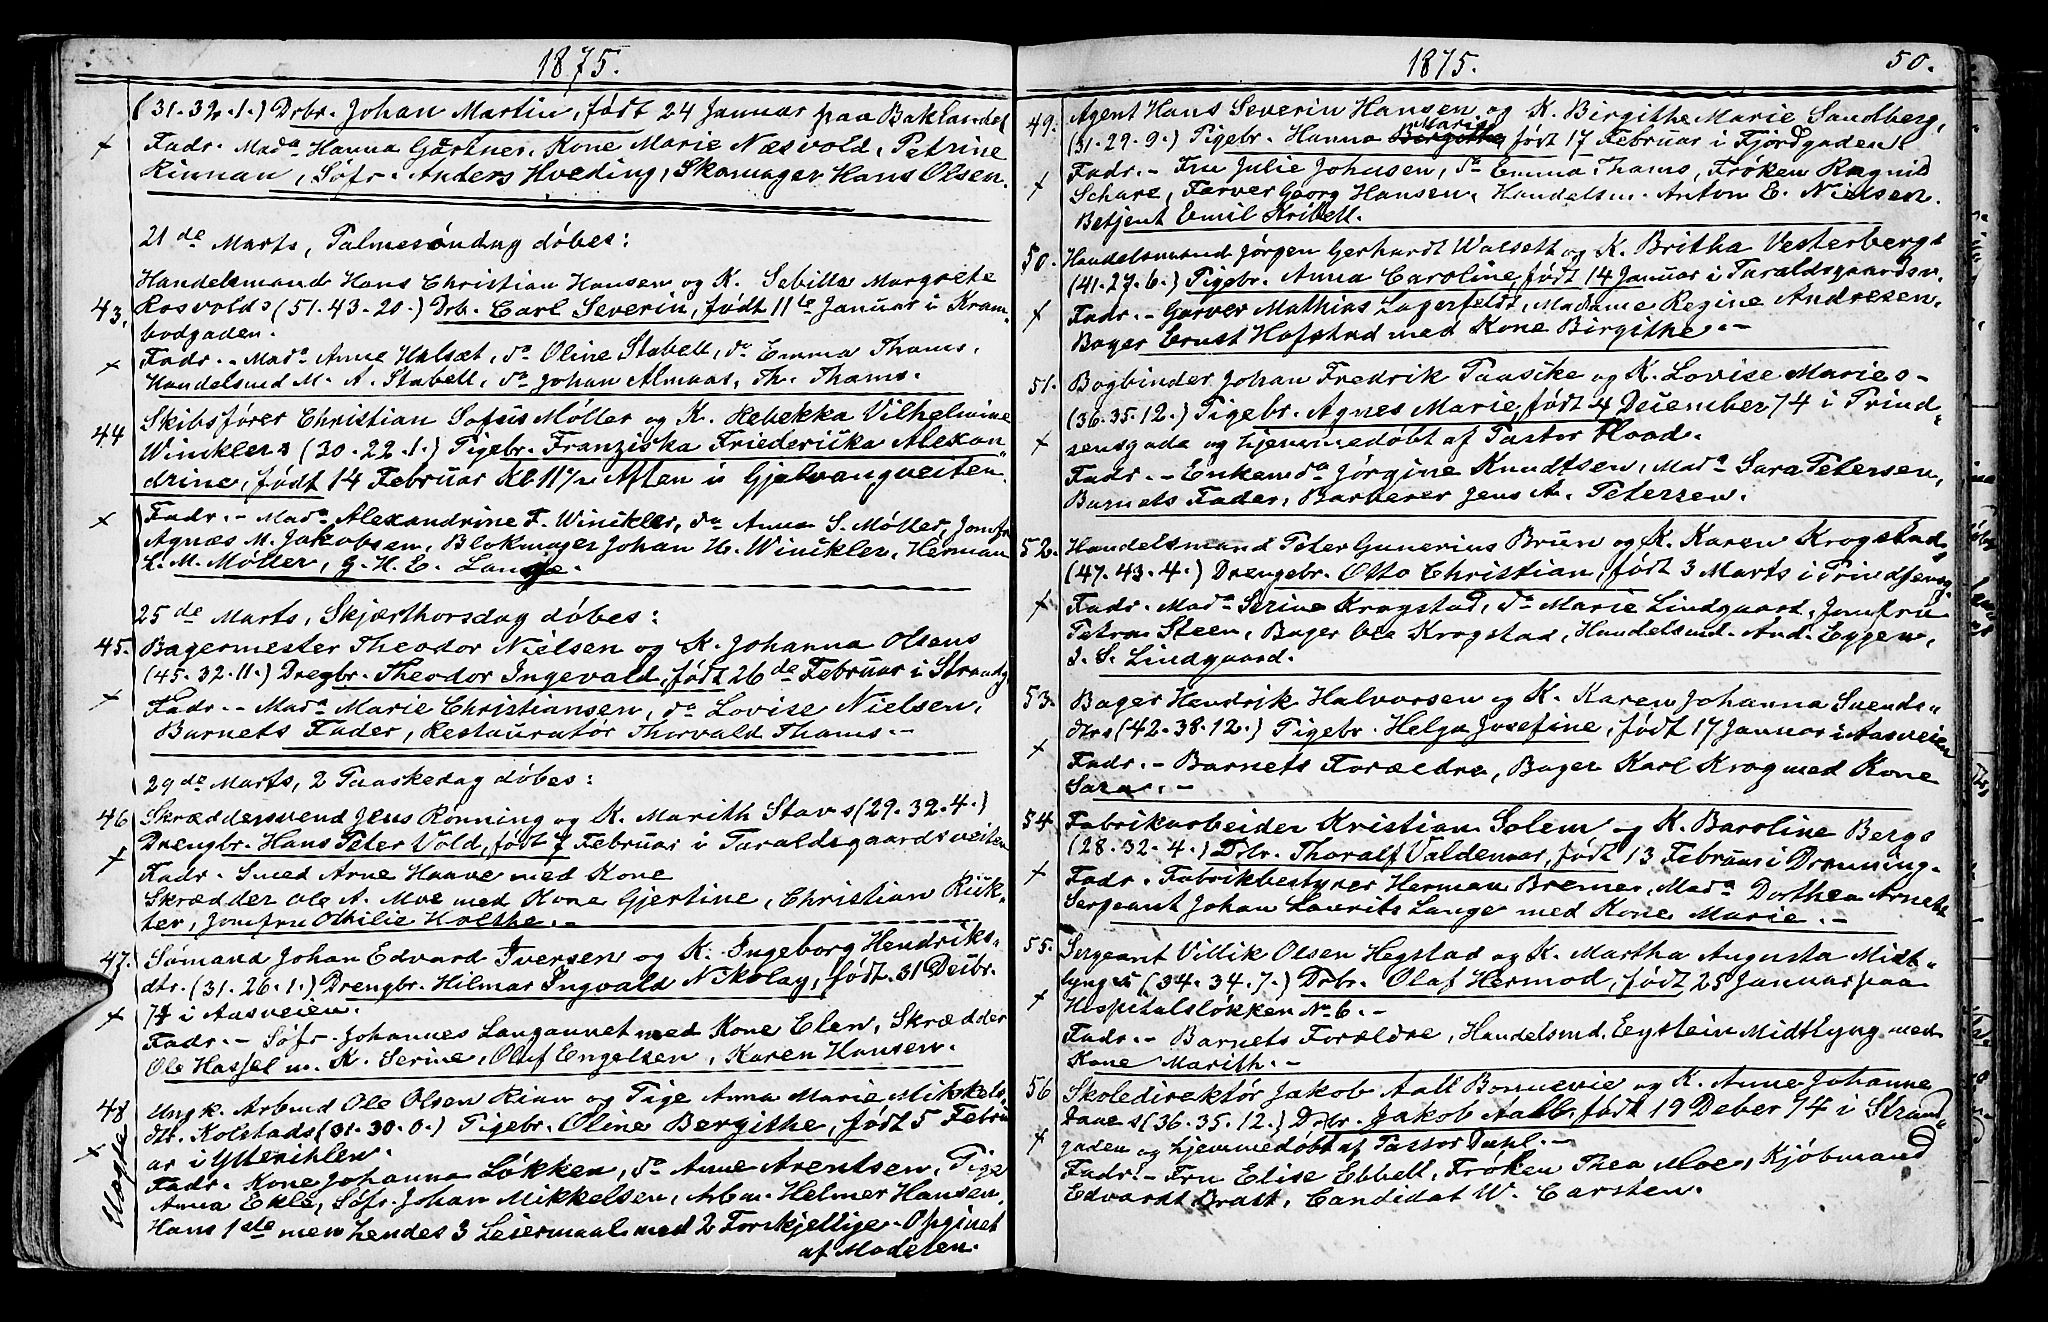 1875.
(31.32.1.) Drbr. Johan Martin, født 24 Januar paa Baklandet
Fadr. Mada Hanna Gärtner, Kone Marie Næsvold, Petrine
Rinnan, Søfr. Anders Hveding, Skomager Hans Olsen.
21de Marts, Palmesøndag døbes:
43. Handelsmand Hans Christian Hansen og K. Sebilla Margrete
Rosvolds (51.43.20.) Drb. Carl Severin, født 11te Januar i Kram-
bodgaden.
Fadr. - Mada Anne Halsæt, do Oline Stabell, do Emma Thams,
Handelsmd M. A. Stabell, do Johan Almaas, Th. Thams.
44 Skibsfører Christian Sofus Möller og K. Rebekka Vilhelmine
Winklers (30.22.1.) Pigebr. Franziska Friederikka Alexan„
drine, født 14 Februar Kl 11½ Aften i Gjelvangveiten.
Fadr. - Mada Alexandrine F. Winikler, do Anna S. Möller, Jomfr
Agnæs M. Jakobsen, Blokmager Johan H. Winikler, Herman
L. M. Möller, G. H. E. Lange.
25de Marts, Skjærthorsdag døbes:
45. Bagermester Theodor Nielsen og K. Johanna Olsens
(45.32.11.) Dregbr. Theodor Ingevald, født 26de Februar i Strandg
Fadr. - Mada Marie Christiansen, do Lovise Nielsen,
Barnets Fader, Restauratør Thorvald Thams. -
29de Marts, 2 Paaskedag døbes:
46 Skræddersvend Jens Rønning og K. Marith Stavs (29.32.4.)
Drengbr. Hans Peter Vold, født 7 Februar i Taraldsgaardsveiten
Fadr. Smed Arne Haave med Kone
Skrædder Ole A. Moe med Kone Gjertine, Christian Rik-
ter, Jomfru Othilie Holthe. -
47. Sømand Johan Edvard Iversen og K. Ingeborg Hendriks„
dtr. (31.26.1.) Drengbr. Hilmar Ingvald Nikolay, født 31 Decbr.
74 i Aasveien.
Fadr. - Søfr. Johannes Langaunet med Kone Elen, Skrædder
Ole Hassel m. K. Serine, Oluf Engelsen, Karen Hansen.
48 Ungk. Arbmd Ole Olsen Rian og Pige Anna Marie Mikkels„
dtr. Kolstads (31.30.0.) Pigebr. Oline Bergithe, født 5 Febru
ar i Ytterihlen.
Fadr. Kone Johanna Løkken, do Anne Arentsen, Pige
Anna Ekle, Søfr. Johan Mikkelsen, Arbm. Helmer Hansen,
Hans 1ste men hendes 3 Leiermaal med 2 Forskjellige. Opginet
af Moderen.
Uægte
1875. 50.
49. Agent Hans Severin Hansen og K. Birgithe Marie Sandberg,
(31.29.9.) Pigebr. Hanna Birgitha Marie født 17 Februar i Fjordgaden
Fadr. - Fru Julie Johnsen, do Emma Thams, Frøken Ragnid
Schare, Farver Georg Hansen, Handelsm. Anton E. Nielsen.
Betjent Emil Kribell.
50. Handelsmand Jørgen Gerhardt Walseth og K. Britha Vesterbergs
(41.27.6.) Pigebr. Anna Caroline, født 14 Januar i Taraldsgaardsv.
Fadr. - Garver Mathias Lagerfeldt, Madame Regine Andresen,
Bager Ernst Hofstad med Kone Birgithe. -
51. Bogbinder Johan Fredrik Paasike og K. Lovise Maries -
(36.35.12.) Pigebr. Agnes Marie, født 4 December 74 i Prind„
sensgade og hjemmedøbt af Pastor Hood.
Fadr. - Enkemda Jørgine Knudtsen, Mada Sara Petersen,
Barnets Fader, Barberer Jens A. Petersen.
52. Handelsmand Peter Gunerius Brun og K. Karen Krogstads
(47.43.4.) Drengebr. Otto Christian, født 3 Marts i Prindsensg
Fadr. Mada Serine Krogstad, do Marie Lindgaard, Jomfru
Petra Steen, Bager Ole Krogstad, Handelsmd. And. Eggen,
I. S. Lindgaard.
53. Bager Hendrik Halvorsen og K. Karen Johanna Svends„
dtrs (42.38.12.) Pigebr. Helga Josefine, født 17 Januar i Aasveien
Fadr. - Barnets Forældre, Bager Karl Krog med Kone
Sara. -
54 Fabrikarbeider Kristian Solem og K. Baroline Bergs
(28.32.4.) Drbr. Thoralf Valdemar, født 13 Februar i Dronning-
Fadr. Fabrikbestyrer Herman Bremer, Mada Dorthea Arnets
Sergeant Johan Laurits Lange med Kone Marie. -
55. Sergeant Villik Olsen Hegstad og K. Martha Augusta Midt„
lyngs (34.34.7.) Drbr. Olaf Hermod, født 25 Januar paa
Hospitalsløkken No 6. -
Fadr. - Barnets Forældre, Handelsmd. Eystein Midtlyng med
Kone Marith. -
56 Skoledirektør Jakob Aall Bonnevie og K. Anne Johanne
Daaes (36.35.12.) Drbr. Jakob Aall, født 19 Deber 74 i Strand„
gaden og hjemmedøbt af Pastor Dahl. -
Fadr. - Fru Elise Ebbell, Frøken Thea Moe, Kjøbmand
Edvardt Bratt, Candidat W. Carsten.